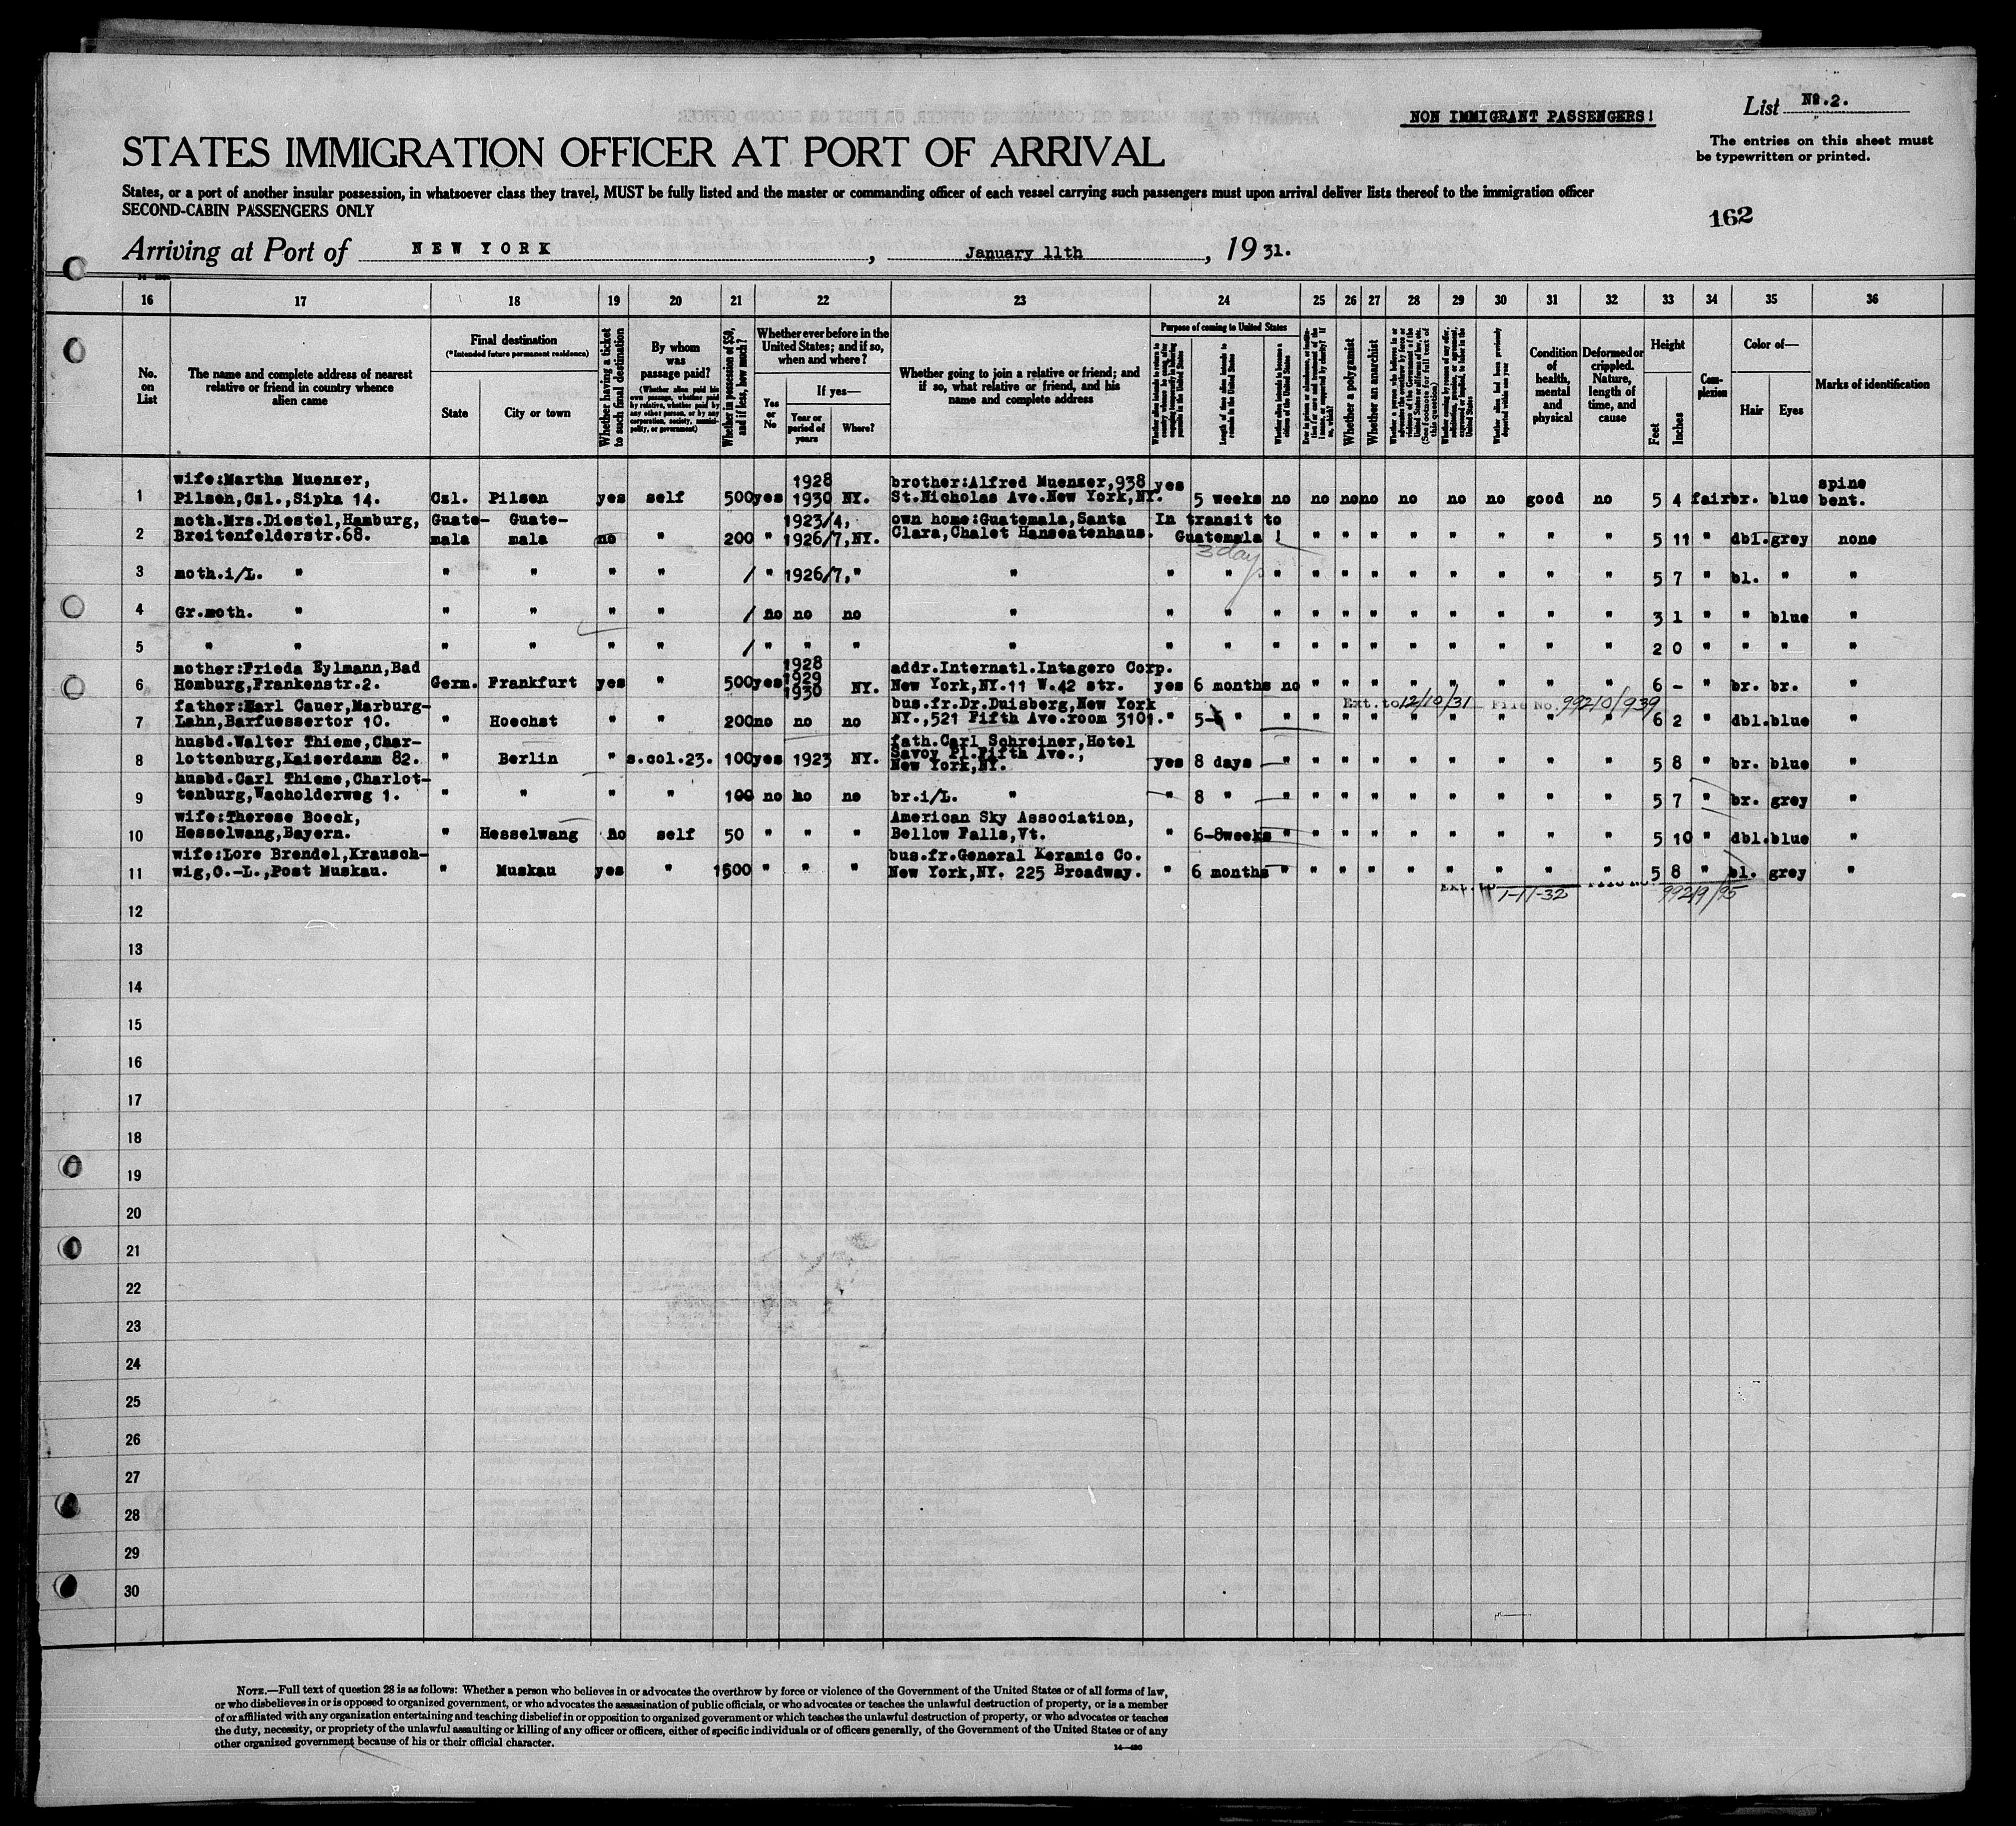 NON IMMIGRANT PASSENGERS!
List No.2.
The entries on this sheet must
be typewritten or printed.
STATES IMMIGRATION OFFICER AT PORT OF ARRIVAL
States, or a port of another insular possession, in whatsoever class they travel, MUST be fully listed and the master or commanding officer of each vessel carrying such passengers must upon arrival deliver lists thereof to the immigration officer
SECOND-CABIN PASSENGERS ONLY
162
Arriving at Port of NEW YORK, January 11th, 1931.
16 17 18 19 20 21 22 23 24 25 26 27 28 29 30 31 32 33 34 35 36
No. on List
The name and complete address of nearest
relative or friend in country whence
alien came
Final destination
(*Intended future permanent residence)
State
City or town
Whether having a ticket
to such final destination
By whom
was
passage paid?
(Whether alien paid his
own passage, whether paid
by relative, whether paid by
any other person, or by any
corporation, society, munici-
pality, or government)
Whether in possession of $50,
and if less, how much?
Whether ever before in the
United States; and if so,
when and where?
Yes
or
No
If yes—
Year or
period of
years
Where?
Whether going to join a relative or friend; and
if so, what relative or friend, and his
name and complete address
Purpose of coming to United States
Length of time alien intends to
remain in the United States
Whether alien intends to become a
citizen of the United States
Whether a polygamist
Whether an anarchist
Whether alien had been previously
deported within one year
Condition
of
health,
mental
and
physical
Deformed or
crippled.
Nature,
length of
time, and
cause
Height
Feet
Inches
Com-
plexion
Color of—
Hair
Eyes
Marks of identification
wife:Martha Muenzer, 1928 brother:Alfred Muenzer,938 yes spine
1 Pilsen,Csl.,Sipka 14. Csl. Pilsen yes self 500 yes 1930 NY. St.Nicholas Ave.New York,NY. 5 weeks no no no no no no no good no 5 4 fair br. blue bent.
moth.Mrs.Diestel,Hamburg, Guate- Guate- 1923/4, own home:Guatemala,Santa In transit to
2 Breitenfelderstr.68. mala mala no " 200 " 1926/7,NY. Clara,Chalet Hanseatenhaus. Guatemala ! " " " " " " " " 5 11 " dbl. grey none
3 day
3 moth.i/L. " " " " " / " 1926/7," " " " " " " " " " " " " 5 7 " bl. " "
4 Gr.moth. " " " " " / no no no " " " " " " " " " " " " 3 1 " " blue "
5 " " " " " " / " " " " " " " " " " " " " " " 2 0 " " " "
mother:Frieda Eylmann,Bad 1928 addr.Internatl.Intagero Corp.
1929
6 Homburg,Frankenstr.2. Germ. Frankfurt yes " 500 yes 1930 NY. New York,NY.11 W.42 str. yes 6 months no " " " " " " " " 6 - " br. br. "
Ext. to 12/10/31 File No. 99210/939
father:Karl Cauer,Marburg- bus.fr.Dr.Duisberg,New York
7 Lahn,Barfuessertor 10. " Hoechst " " 200 no no no NY.,521 Fifth Ave.room 3101. " 5-6 " " " " " " " " " " 6 2 " dbl. blue "
husbd.Walter Thieme,Char- fath.Carl Schreiner,Hotel
Savoy Pl.Fifth Ave.,
8 lottenburg,Kaiserdamm 82. " Berlin " s.col.23. 100 yes 1923 NY. New York,NY. yes 8 days " " " " " " " " " 5 8 " br. blue "
husbd.Carl Thieme,Charlot-
9 tenburg,Wacholderweg 1. " " " " 100 no no no br.i/L. " " 8 " " " " " " " " " " 5 7 " br. grey "
wife:Therese Boeck, American Sky Association,
10 Hesselwang,Bayern. " Hesselwang no self 50 " " " Bellow Falls,Vt. " 6-8weeks " " " " " " " " " 5 10 " dbl. blue "
wife:Lore Brendel,Krausch- bus.fr.General Keramic Co.
11 wig,O.-L.,Post Muskau. " Muskau yes " 1500 " " " New York,NY. 225 Broadway. " 6 months " " " " " " " " " 5 8 " bl. grey "
Ext. to 1-11-32 File No. 99219/95
12
13
14
15
16
17
18
19
20
21
22
23
24
25
26
27
28
29
30
NOTE.—Full text of question 28 is as follows: Whether a person who believes in or advocates the overthrow by force or violence of the Government of the United States or of all forms of law,
or who disbelieves in or is opposed to organized government, or who advocates the assassination of public officials, or who advocates or teaches the unlawful destruction of property, or is a member
of or affiliated with any organization entertaining and teaching disbelief in or opposition to organized government or which teaches the unlawful destruction of property, or who advocates or teaches
the duty, necessity, or propriety of the unlawful assaulting or killing of any officer or officers, either of specific individuals or of officers generally, of the Government of the United States or of any
other organized government because of his or their official character.
14—430